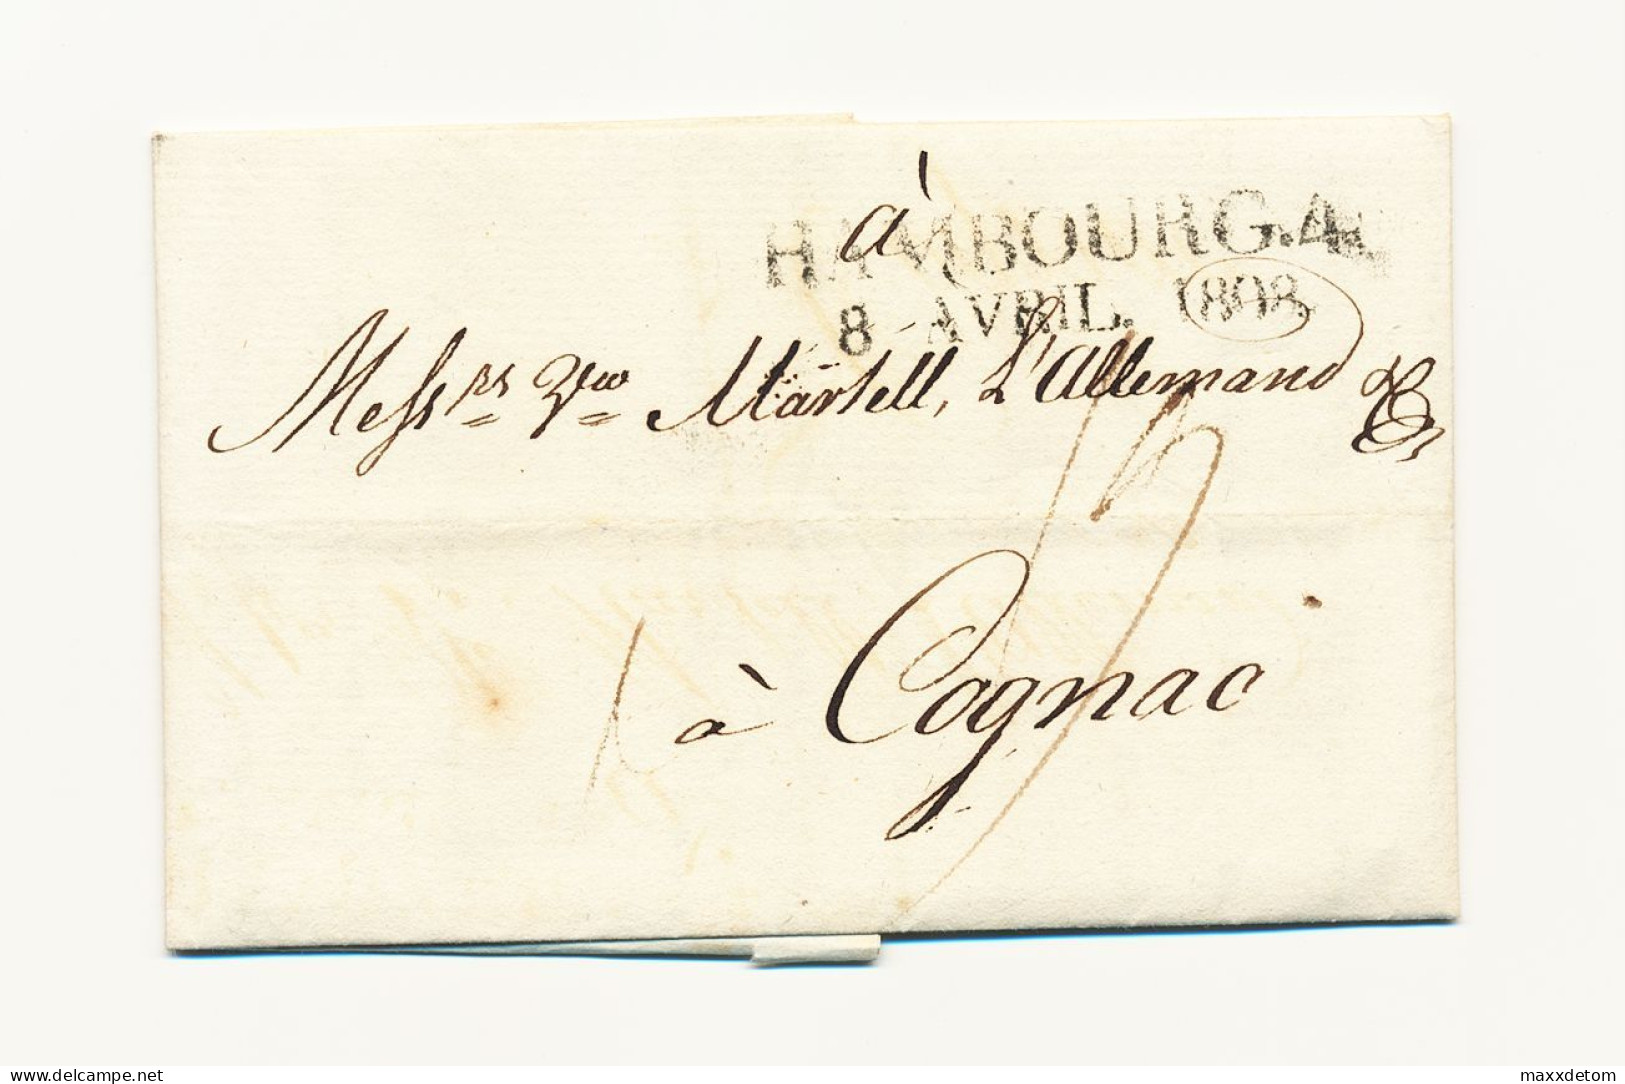 à
HAMBOURG.4.
8 AVRIL. 1808
Messrs Vve Martell, L'Allemand & C
à Cognac
Delcampe.net
maxxdetom